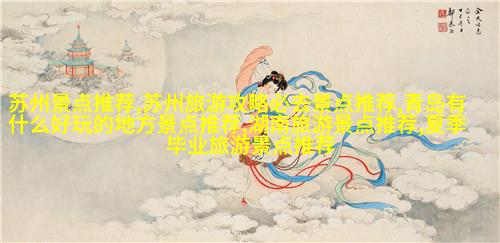 苏州景点推荐,苏州旅游攻略必去景点推荐,青岛有
什么好玩的地方景点推荐,湖南旅游景点推荐,夏季
毕业旅游景点推荐